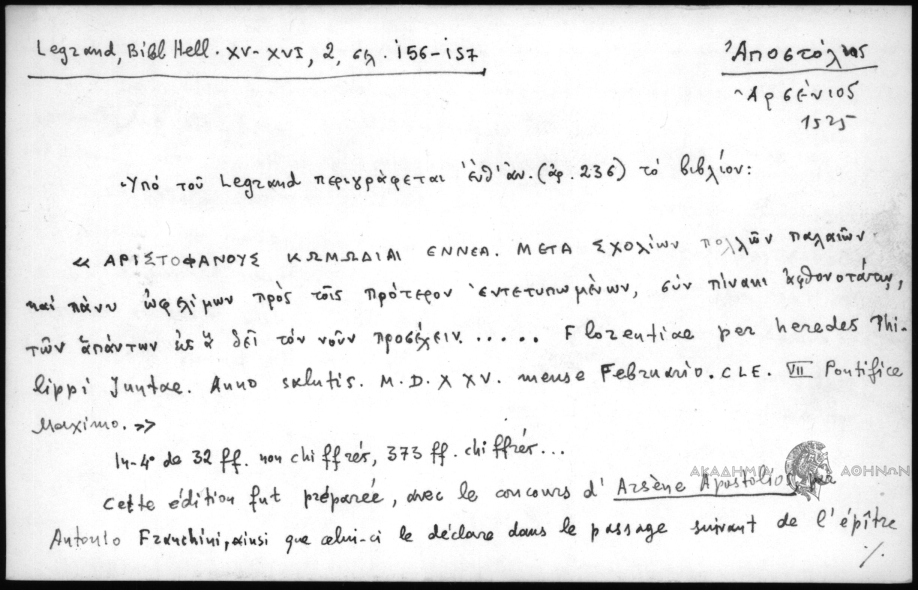 Legrand, Bibl Hell. XV-XVI, 2, σελ. 156-157
Ἀποστόλιος
Ἀρσένιος
1525
Ὑπό τοῦ Legrand περιγράφεται ἐνθ' ἀν. (ἀρ. 236) τό βιβλίον:
« ΑΡΙΣΤΟΦΑΝΟΥΣ ΚΩΜΩΔΙΑΙ ΕΝΝΕΑ. ΜΕΤΑ Σχολίων πολλῶν παλαιῶν
καί πάνυ ὠφελίμων πρός τοῖς πρότερον ἐντετυπωμένων, σύν πίνακι ἀφθονοτάτῳ,
τῶν ἁπάντων εἰς ἅ δεῖ τόν νοῦν προσέχειν..... Florentiae per heredes Phi-
lippi Juntae. Anno salutis. M. D. X XV. mense Februario. CLE. VII Pontifice
Maximo. »
In-4° de 32 ff. non chiffrés, 373 ff. chiffrés...
ΑΚΑΔΗΜΙΑ ΑΘΗΝΩΝ
Cette édition fut préparée, avec le concours d' Arsène Apostolios par
Antonio Franchini, ainsi que celui-ci le déclare dans le passage suivant de l'épître
./.